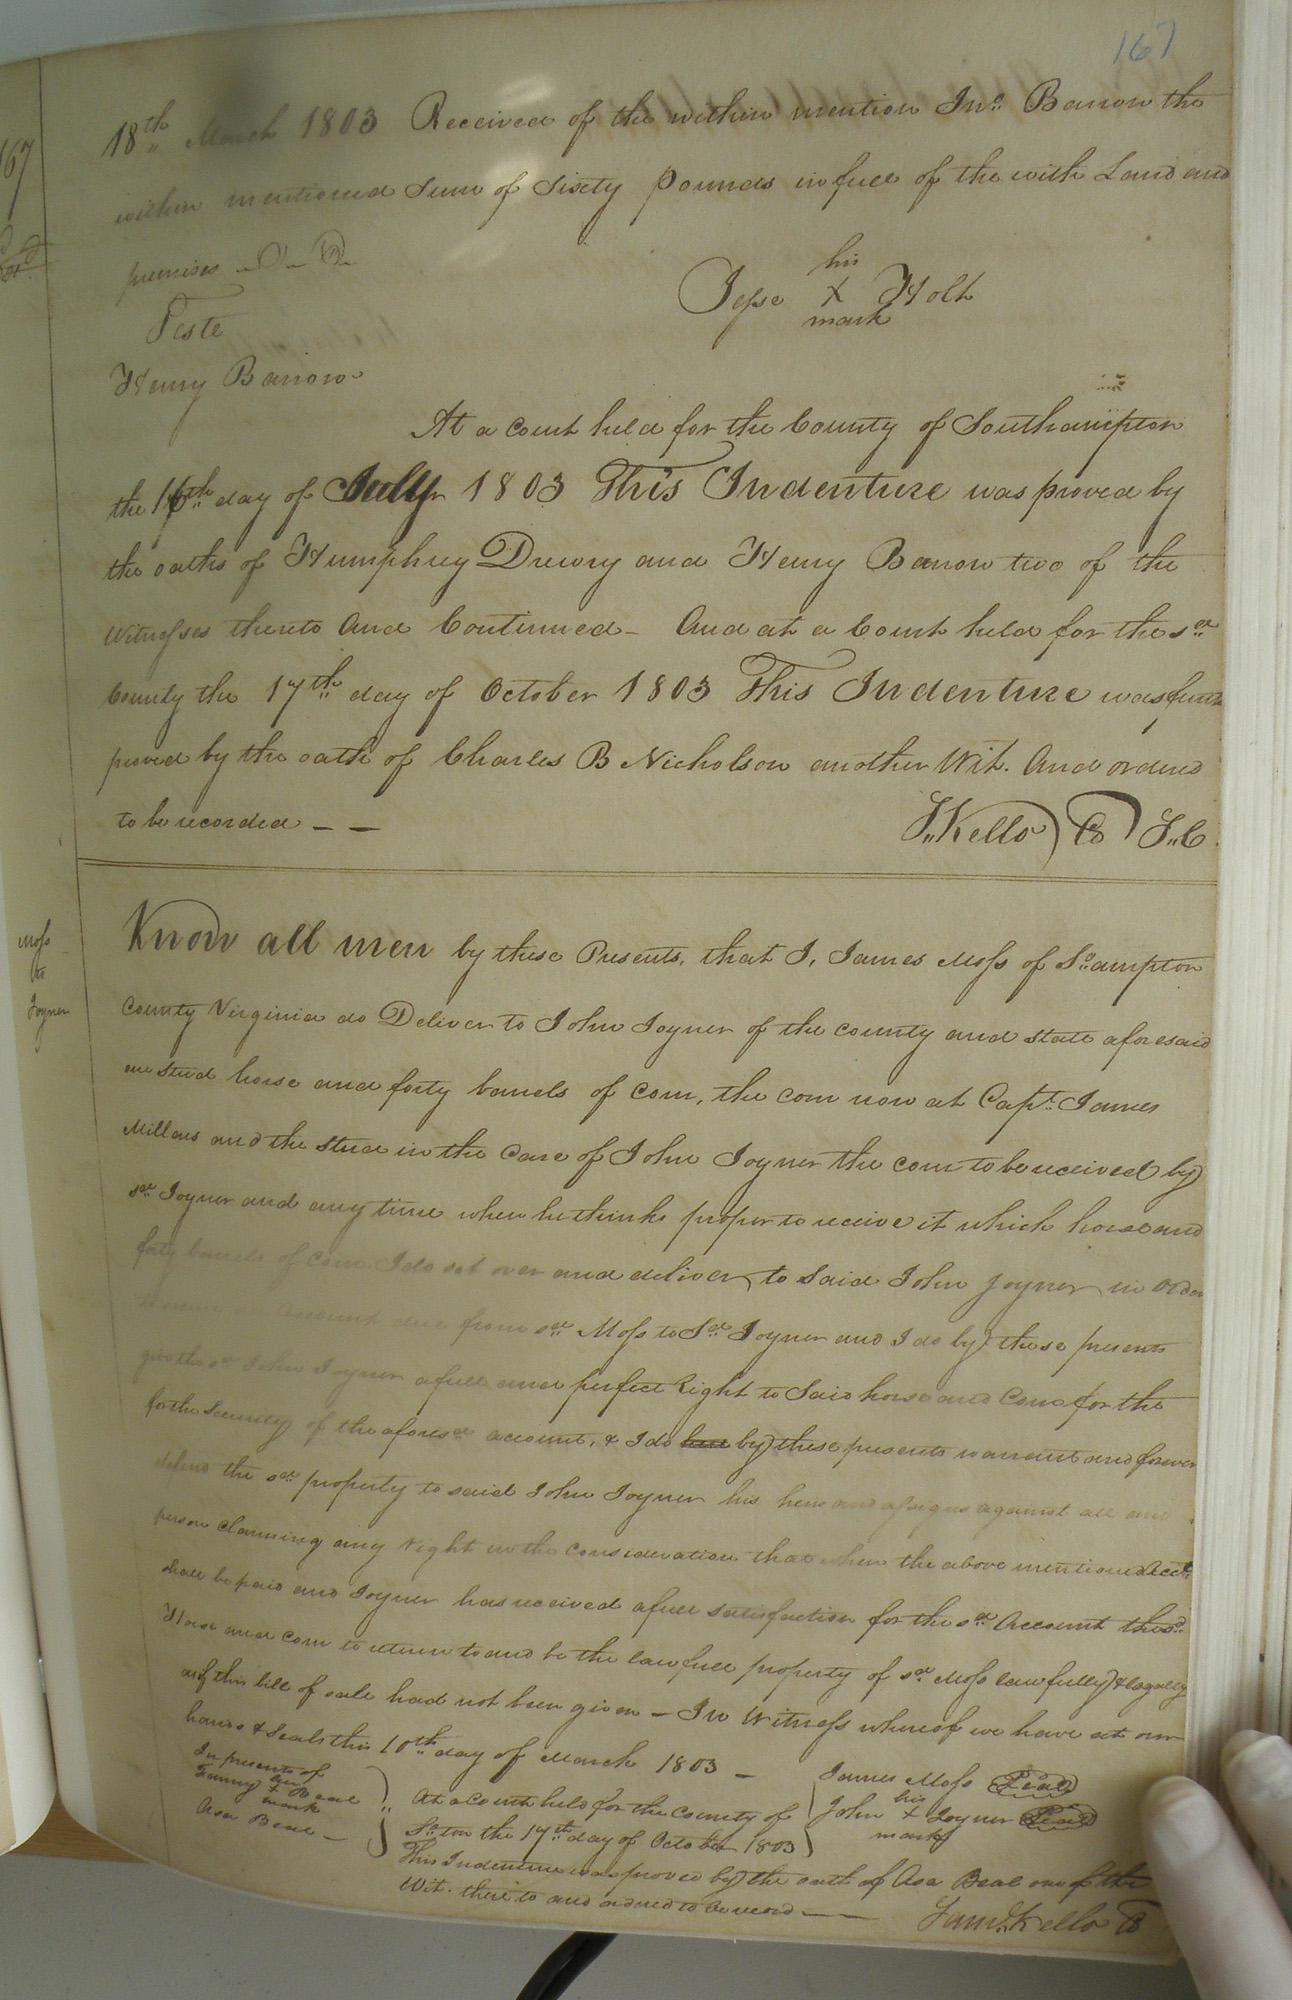 167
18th March 1803 Received of the within mention Jno. Barrow the
within mentioned Sum of Sixty pounds in full of the with Land and
premises
his
Jesse X Holt
mark
Teste
Henry Barrow
At a Court held for the County of Southampton
the 18th day of July 1803 This Indenture was proved by
the oaths of Humphrey Drewry and Henry Barrow two of the
Witnesses thereto And Continued - And at a Court held for the sd.
County the 17th day of October 1803 This Indenture was furr
proved by the oath of Charles B Nicholson another Wit. And ordered
to be recorded - -
S. Kello
Moss
to
Joyner
Know all men by these Presents, that I, James Moss of So.ampton
County Virginia do Deliver to John Joyner of the county and state aforesaid
one stud horse and forty barrels of corn, the corn now at Capt. James
Millars and the stud in the Care of John Joyner the corn to be received by
sd. Joyner and any time when he thinks proper to receive it which horse and
forty barrels of corn. I do set over and deliver to said John Joyner in order
amount due from sd. Moss to Sd. Joyner and I do by these presents
give the sd. John Joyner a full and perfect Right to Said horse and Corn for the
for the Security of the aforesd. account, & I do here by these presents warrant and forever
defend the sd. property to said John Joyner his heirs and assigns against all and
person claiming any right in the Consideration that when the above mentioned acct.
shall be paid and Joyner has received a full satisfaction for the sd. Account the sd.
Horse and corn to return to and be the lawfull property of sd. Moss lawfully & legally
as if this bill of sale had not been given - In Witness whereof we have at our
hands & Seals this 10th day of March 1803 -
In presents of
Fanny her X mark Beal
Asa Beal -
James Moss Seal
John his X mark Joyner Seal
At a Court held for the County of
So.ton the 17th day of October 1803
This Indenture was proved by the oath of Asa Beal one of the
Wit. thereto and ordered to be record -
Saml. Kello